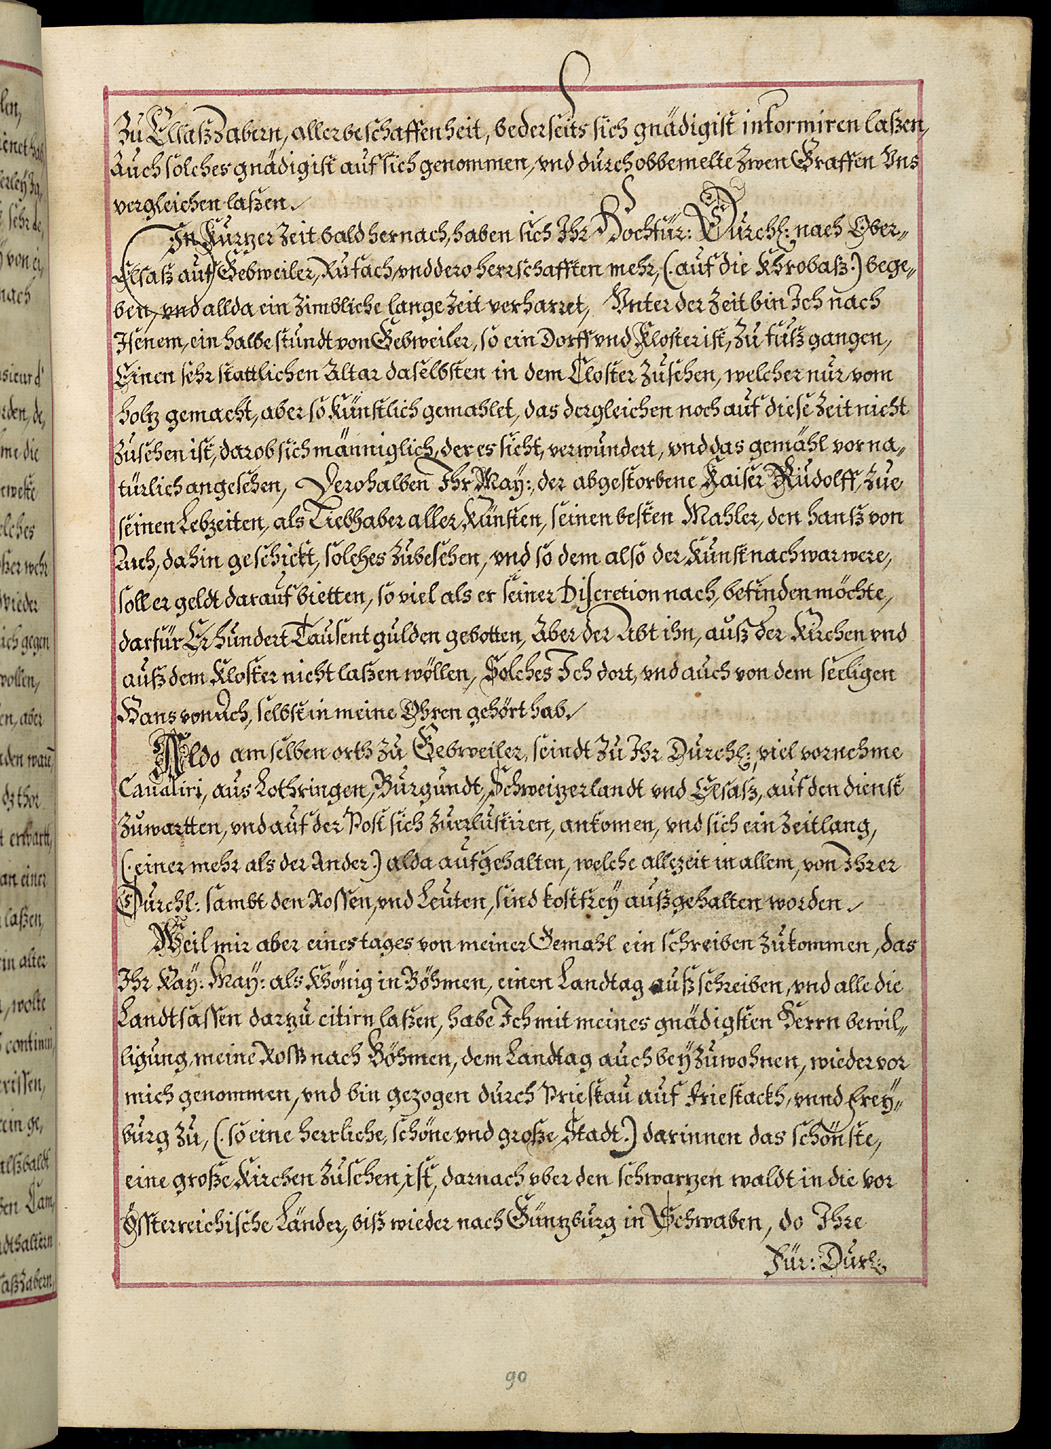 Zu Elsaß Zabern, aller beschaffenheit, bederseits sich gnädigist informiren laßen,
Auch solches gnädigist auf sich genommen, vnd durch obbemelte zwen Graffen Vns
vergleichen laßen.
In Kurtzer Zeit bald hernach, haben sich Ihr Hochfür: Durchl: nach Ober-
Elsaß auf Gebweiler, Rufach, vnd dero herrschafften mehr, (auf die Khrobaß:) bege-
ben, vnd allda ein zimbliche lange Zeit verharret, Vnter der Zeit bin Ich nach
Isenem, ein halbe stundt von Gebweiler, so ein Dorff vnd Kloster ist, zu fuß gangen,
Einen sehr stattlichen Altar daselbsten in dem Closter Zusehen, welcher nur vom
holtz gemacht, aber so Künstlich gemahlet, das dergleichen noch auf diese Zeit nicht
Zusehen ist, darob sich männiglich, der es sieht, verwundert, vnd das gemähl vor na-
türlich angesehen, Derohalben Ihr May:, der abgestorbene Kaiser Rudolff, zue
seinen Lebzeiten, als Liebhaber aller Künsten, seinen besten Mahler, den Hanß von
Ach, dahin geschickt, solches Zubesehen, vnd so dem also der Kunst nach war were,
soll er geldt darauf bietten, so viel als er seiner Discretion nach, befinden möchte,
darfür Er hundert Tausent gulden gebotten, Aber der Abt ihn, auß der Kirchen vnd
auß dem Kloster nicht laßen wöllen, Solches Ich dort, vnd auch von dem seeligen
Hans von Ach, selbst in meine Ohren gehört hab.
Aldo am selben orth zu Gebweiler, seindt zu Ihr Durchl: viel vornehme
Caualiri, aus Lothringen, Burgundt, Schweitzerlandt vnd Elsaß, auf den dienst
Zuwartten, vnd auf der Post sich Zuerlustiren, ankomen, vnd sich ein Zeitlang,
(:einer mehr als der Ander:) alda aufgehalten, welche allezeit in allem, von Ihrer
Durchl: sambt den Rossen, vnd Leuten, sind kostfrey außgehalten worden.
Weil mir aber eines tages von meiner Gemahl ein schreiben Zukommen, das
Ihr Kay: May: als König in Böhmen, einen Landtag außschreiben, vnd alle die
Landtsassen dartzu citirn laßen, habe Ich mit meines gnädigsten Herrn bewil-
ligung, meine Roß nach Böhmen, dem Landtag auch beyzuwohnen, wieder vor
mich genommen, vnd bin gezogen durch Prießkau auf Priestackh, vnnd Frey-
burg zu, (:so eine herrliche, schöne vnd große Stadt:) darinnen das schönste,
eine große Kirchen Zusehen, ist, darnach vber den schwartzen waldt in die vor
össterreichische Länder, biß wieder nach Güntzburg in Schwaben, do Ihre
Für: Durl:
90